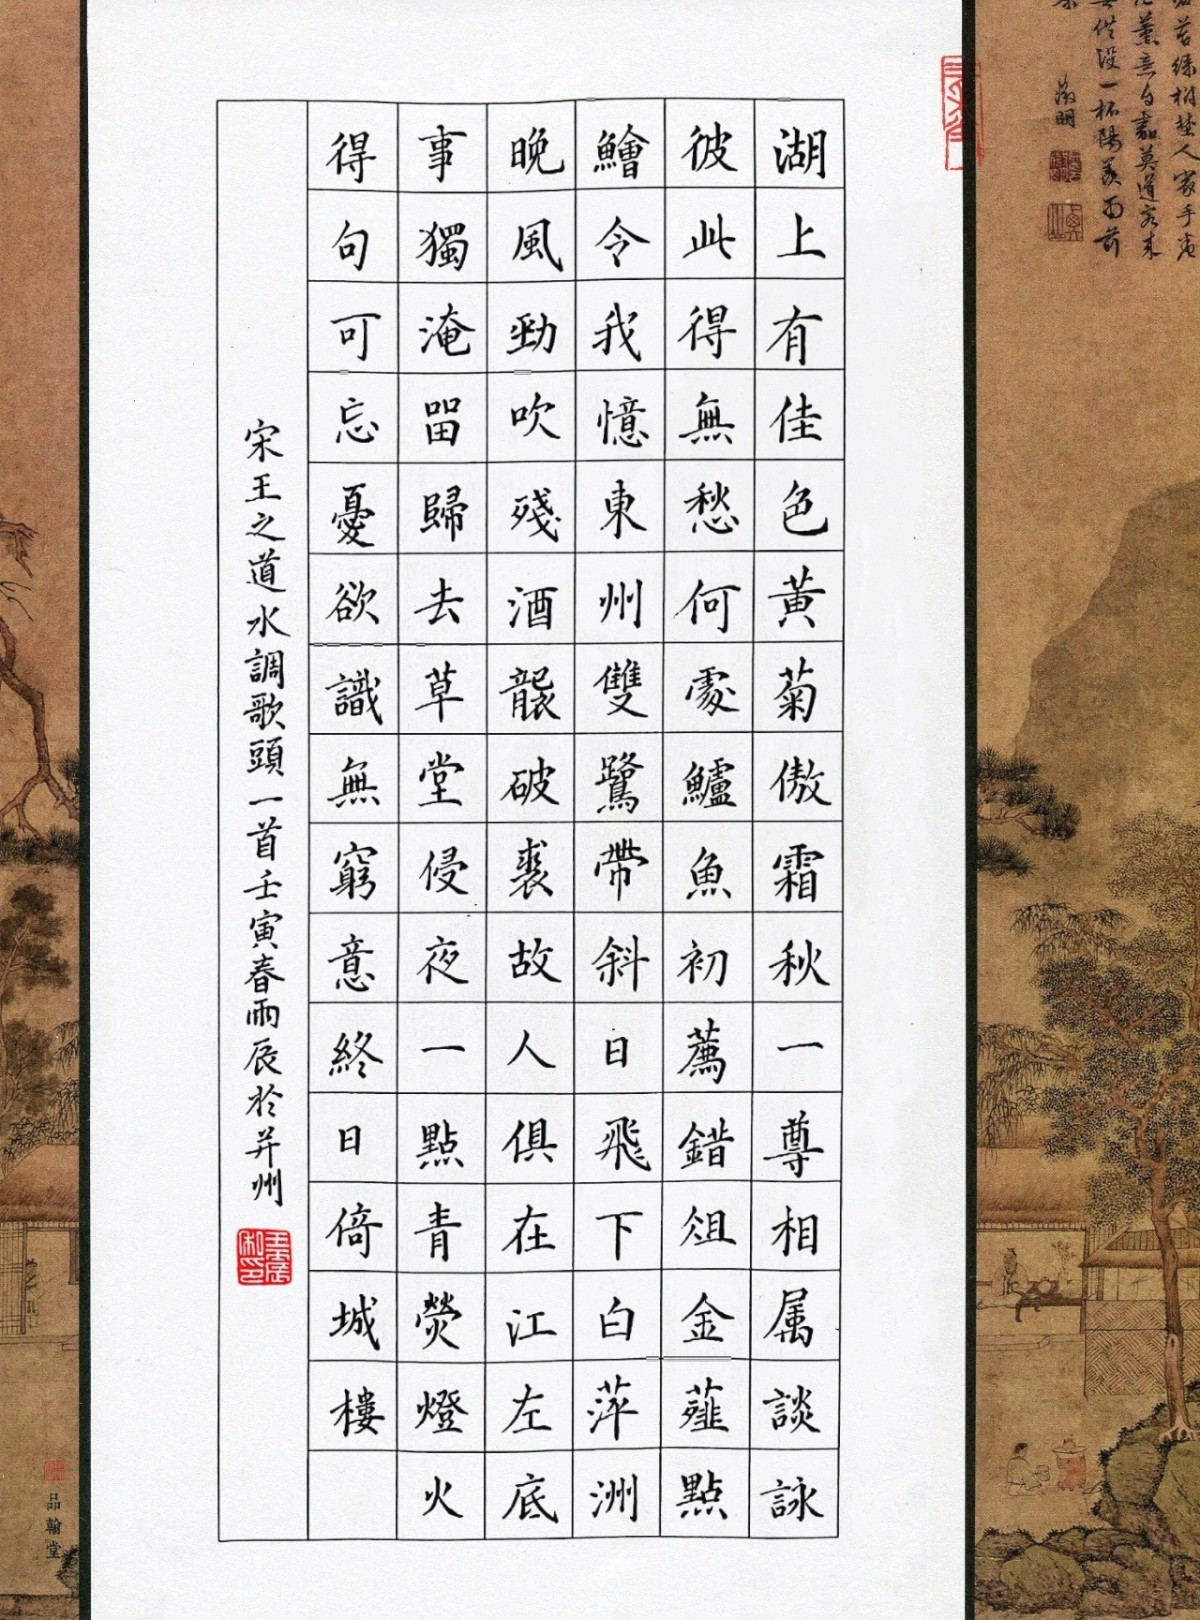 湖上有佳色黃菊傲霜秋一尊相属談詠
彼此得無愁何處鱸魚初薦錯俎金薤點
鱠令我憶東州雙鷺帶斜日飛下白萍洲
晚風勁吹殘酒襲破裘故人俱在江左底
事獨淹留歸去草堂侵夜一點青熒燈火
得句可忘憂欲識無窮意終日倚城樓
宋王之道水調歌頭一首壬寅春雨辰於并州
徵明
品翰堂